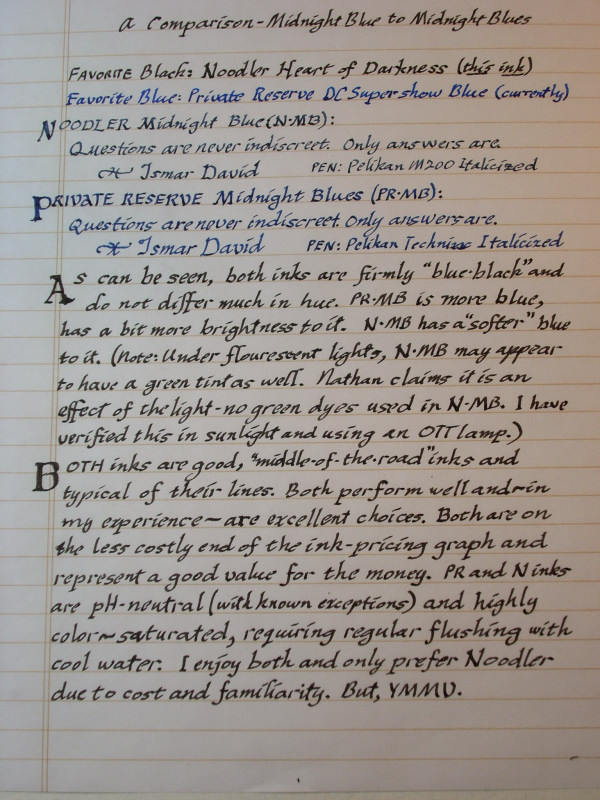 A Comparison - Midnight Blue to Midnight Blues
Favorite Black: Noodler Heart of Darkness (this ink)
Favorite Blue: Private Reserve DC Supershow Blue (currently)
NOODLER Midnight Blue (N·MB):
Questions are never indiscreet. Only answers are.
Ismar David PEN: Pelikan M200 Italicized
PRIVATE RESERVE Midnight Blues (PR·MB):
Questions are never indiscreet. Only answers are.
Ismar David PEN: Pelikan Technixx Italicized
As can be seen, both inks are firmly "blue·black" and
do not differ much in hue. PR·MB is more blue,
has a bit more brightness to it. N·MB has a "softer" blue
to it. (Note: Under flourescent lights, N·MB may appear
to have a green tint as well. Nathan claims it is an
effect of the light - no green dyes used in N·MB. I have
verified this in sunlight and using an OTT lamp.)
BOTH inks are good, "middle-of-the-road" inks and
typical of their lines. Both perform well and ~ in
my experience ~ are excellent choices. Both are on
the less costly end of the ink-pricing graph and
represent a good value for the money. PR and N inks
are pH-neutral (with known exceptions) and highly
color~saturated, requiring regular flushing with
cool water. I enjoy both and only prefer Noodler
due to cost and familiarity. But, YMMV.